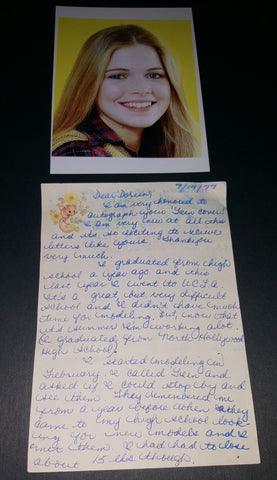 7/19/77
Dear Doreen,
I am very honored to
autograph your 'Teen cover.
I am very new at all this
and it's so exciting to recieve
letters like yours. Thankyou
very much.
I graduated from high
school a year ago and this
last year I went to UCLA
It's a great but very difficult
school and I didn't have much
time for modeling. But, now that
it's summer I'm working alot.
I graduated from North Hollywood
High School.
I started modeling in
February. I called Teen and
asked if I could stop by and
see them They remembered me
from a year before when they
came to my high school look
ing for new models and I
met them. I had had to lose
about 15 lbs though.